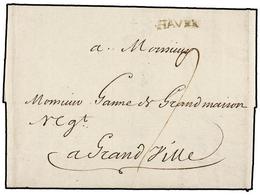 HAVRE
a Monsieur
Monsieur Game de Grandmaison
Negt.
a Grand Ville